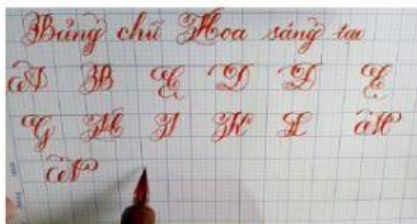 Bảng chữ Hoa sáng tạo
A B C D D E
G H I K L M
N